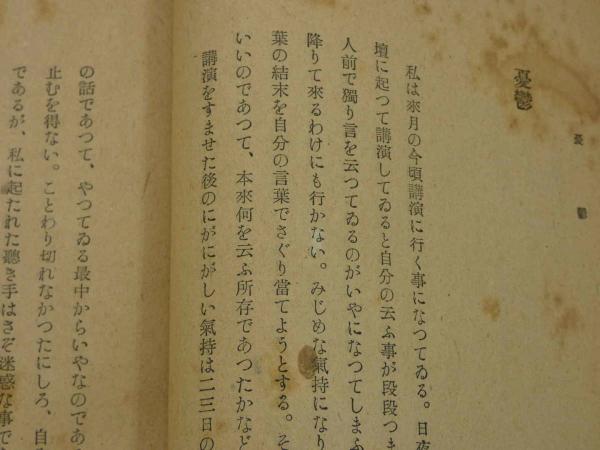 憂鬱
憂鬱
私は來月の今頃講演に行く事になつてゐる。日夜
壇に起つて講演してゐると自分の云ふ事が段段つま
人前で獨り言を云つてゐるのがいやになつてしまふ
降りて來るわけにも行かない。みじめな氣持になり
葉の結末を自分の言葉でさぐり當てようとする。そ
いいのであつて、本來何を云ふ所存であつたかなど
講演をすませた後のにがにがしい氣持は二三日の
の話であつて、やつてゐる最中からいやなのである
止むを得ない。ことわり切れなかつたにしろ、自
であるが、私に起たれた聽き手はさぞ迷惑な事で